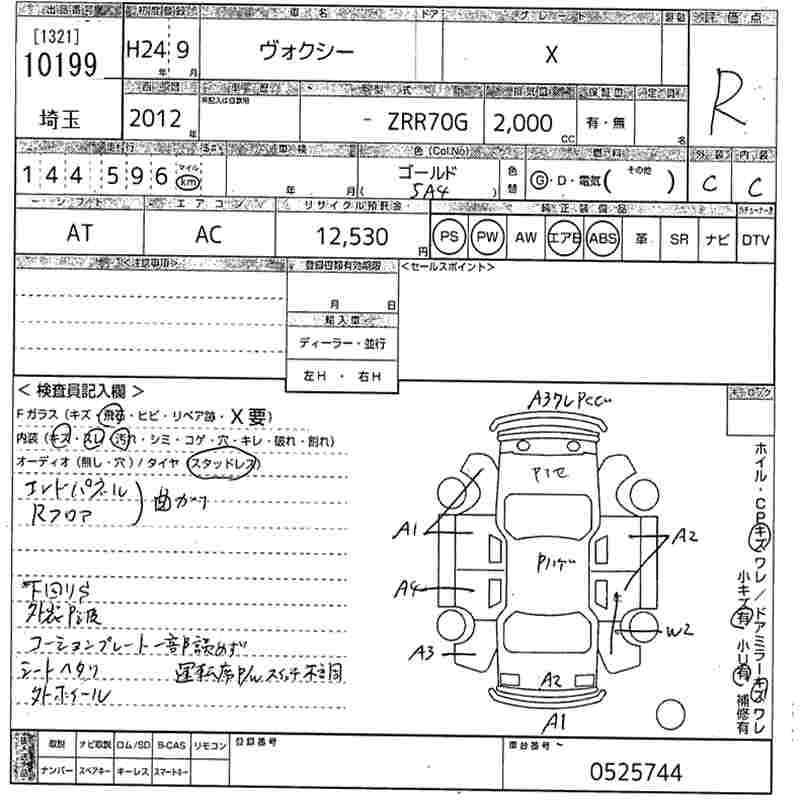 出品番号 初度登録 車名 ドア グレード 評価点
[1321]
10199 H24年 9月 ヴォクシー X R
型式 排気量 保証書 定員
埼玉 2012年 - ZRR70G 2,000CC 有・無 名
車検 色(Col.No) 燃料 その他 外装 内装
144596 マイル km 年 月 ( ゴールド 5A4 ) 色替 G・D・電気( ) C C
シフト エアコン リサイクル預託金 純正装備品
AT AC 12,530円 PS PW AW エアB ABS 革 SR ナビ DTV
<注意事項> 登録書類有効期限 <セールスポイント>
月 日
輸入車
ディーラー・並行
左H ・ 右H
< 検査員記入欄 >
Fガラス(キズ・飛石・ヒビ・リペア跡・X要)
内装(キズ・スレ・汚れ・シミ・コゲ・穴・キレ・破れ・割れ)
オーディオ(無し・穴)/タイヤ(スタッドレス)
エンドパネル
Rフロア ) 曲がり
下回りS
コーションプレート一部読めず
シートヘタリ 運転席P/Wスイッチ不良
外ホイール
A1
A4
A3
A2
W2
A2
A1
ホイール・CPキズワレ/ドアミラーキズワレ
小キズ有 小凹有 補修有
取説 ナビ取説 ロム/SD B-CAS リモコン 登録番号 車台番号
ナンバー スペアキー キーレス スマートキー 0525744